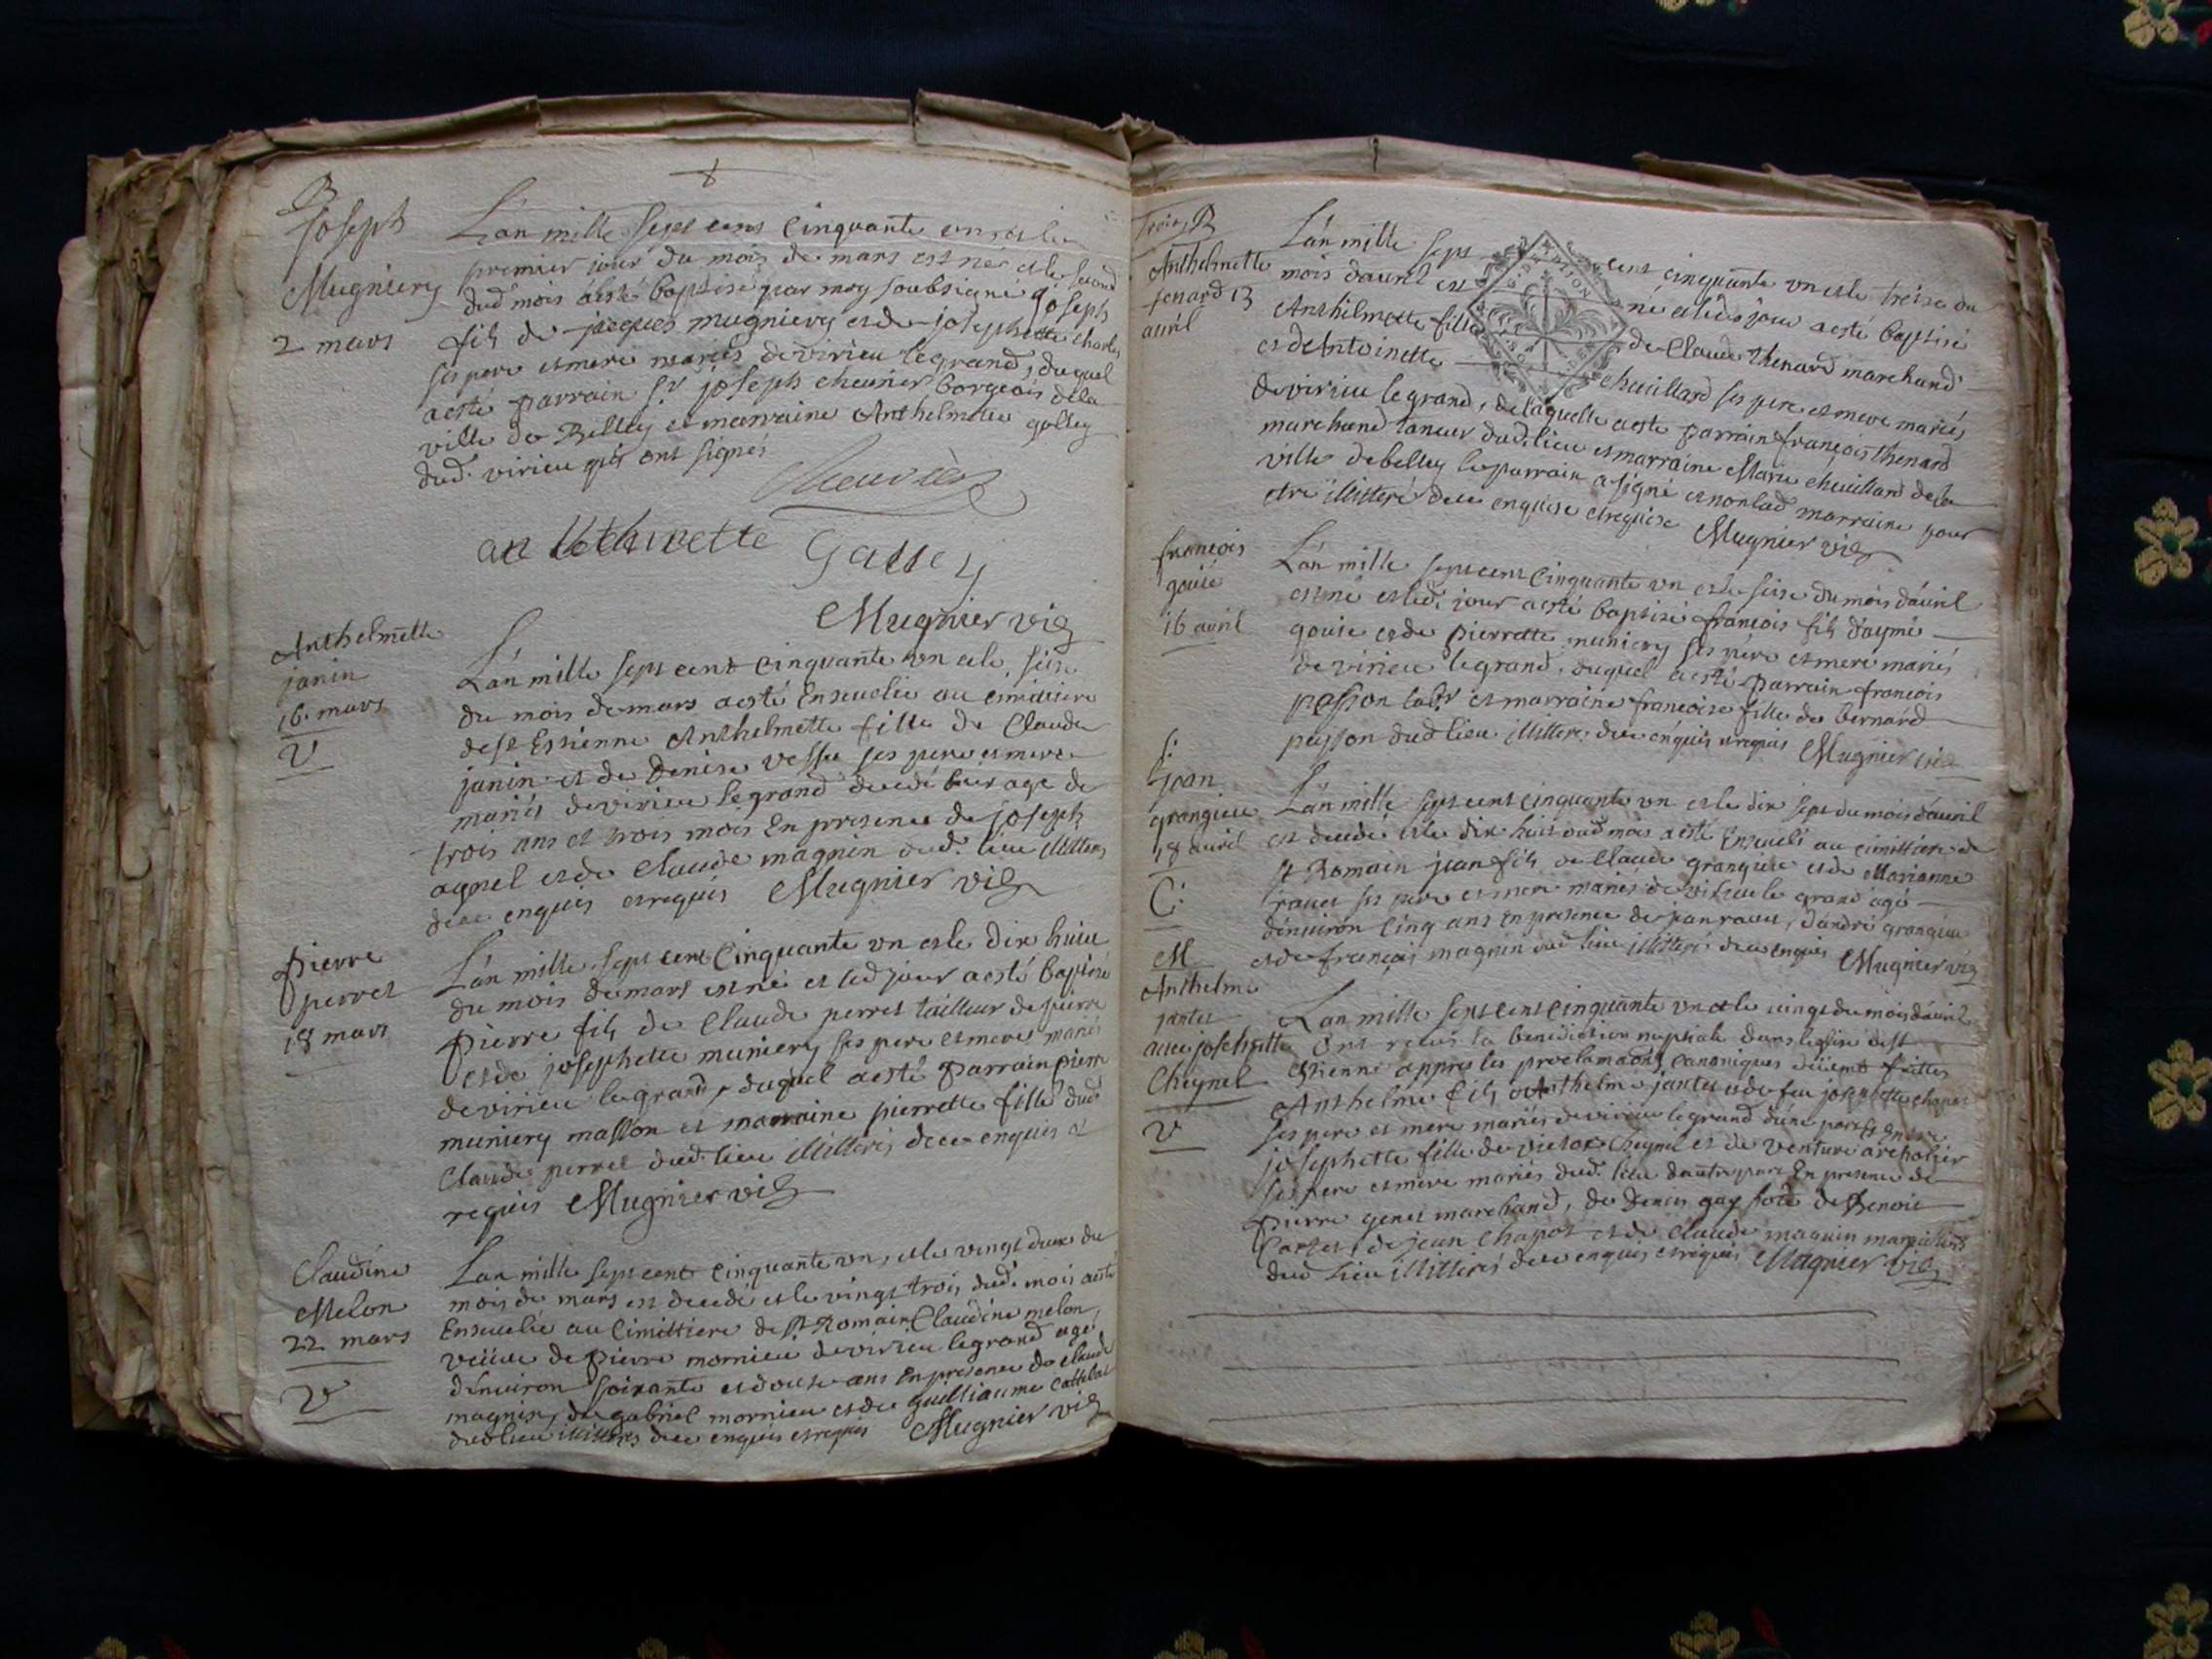 B
Joseph
Mugniery
2 mars
L'an mille sept cens cinquante un et le
premier jour du mois de mars est né et le second
dud mois a esté baptisé par moy soubsigné joseph
fils de jacques mugniery et de josephette charles
ses pere et mere mariés de virieu le grand, duquel
a esté parrain Sr joseph cheurier borgeois de la
ville de Belley et marraine Anthelmette golley
dud. virieu qui ont signés
Cheurier
Galley
Mugnier vic
Anthelmette
janin
16 mars
V
L'an mille sept cent cinquante un et le seise
du mois de mars a esté Enseuelie au cimittiere
de st Estienne Anthelmette fille de Claude
janin et de Denise vesse ses pere et mere
mariés de virieu le grand decedé hier age de
trois ans et trois mois En presence de joseph
agnel et de Claude magnin dud. lieu illitterés
de ce enquis et requis Mugnier vic
pierre
perret
18 mars
L'an mille sept cent cinquante un et le dix huiu
du mois de mars est né et led jour a esté baptisé
pierre fils de Claude perret tailleur de pierre
et de josephette muniery ses pere et mere mariés
de virieu le grand, duquel a esté parrain pierre
muniery masson et marraine pierrette fille dud
Claude perret dud. lieu illitterés de ce enquis et
requis Mugnier vic
Claudine
Melon
22 mars
V
L'an mille sept cent cinquante un, et le vingt deux du
mois de mars est decedé et le vingt trois dud. mois a esté
Enseuelie au cimittiere de st Romain Claudine melon,
veüue de pierre mornieu de virieu le grand agé
d'enuiron soixante et douse ans En presence de Claude
magnin, de gabriel mornieu et de guilliaume
dud lieu illitterés de ce enquis et requis Mugnier vic
B
Anthelmette
tenard 13
auril
L'an mille sept cent cinquante un et le treise du
mois d'auril est né et led. jour a esté baptisé
Anthelmette fille de Claude thenard marchand
et de Antoinette cheuillard ses pere et mere mariés
de virieu le grand, de laquelle a esté parrain françois thenard
marchand taneur dud. lieu et marraine Marie cheuillard de la
ville de belley le parrain a signé et non lad marraine pour
etre illitteré de ce enquise et requise Mugnier vic
francois
gouië
16 auril
L'an mille sept cent cinquante un et le seise du mois d'auril
est né et led. jour a esté baptisé francois fils d'aymé
gouie et de pierrette muniery ses pere et mere mariés
de virieu le grand, duquel a esté parrain francois
peysson labr et marraine francoise fille de bernard
peysson dud lieu illitterés de ce enquis et requis Mugnier vic
jean
grangieu
18 auril
C
L'an mille sept cent cinquante un et le dix sept du mois d'auril
est decedé et le dix huit dud mois a esté Enseueli au cimittiere de
st Romain jean fils de Claude grangieu et de Marianne
rauet ses pere et mere mariés de virieu le grand agé
d'enuiron cinq ans En presence de jean rauet, d'andré grangieu
et de françois magnin dud lieu illitterés de ce enquis Mugnier vic
M
Anthelme
jantet
auec josephette
Cheynel
V
L'an mille sept cent cinquante un et le vingt du mois d'auril
ont receus la benediction nuptiale dans leglise de st
Estienne appres les proclamaons canoniques duëment faittes
Anthelme fils d'Anthelme jantet et de feu josephette chapot
ses pere et mere mariés de virieu le grand d'une part Et Entre
josephette fille de victor Cheynel et de venture
ses pere et mere mariés dud. lieu d'autre part En presence de
pierre genet marchand, de Denis gay, de Benoit
jantet, de jean Chapot et de Claude magnin
dud lieu illitterés de ce enquis et requis Mugnier vic